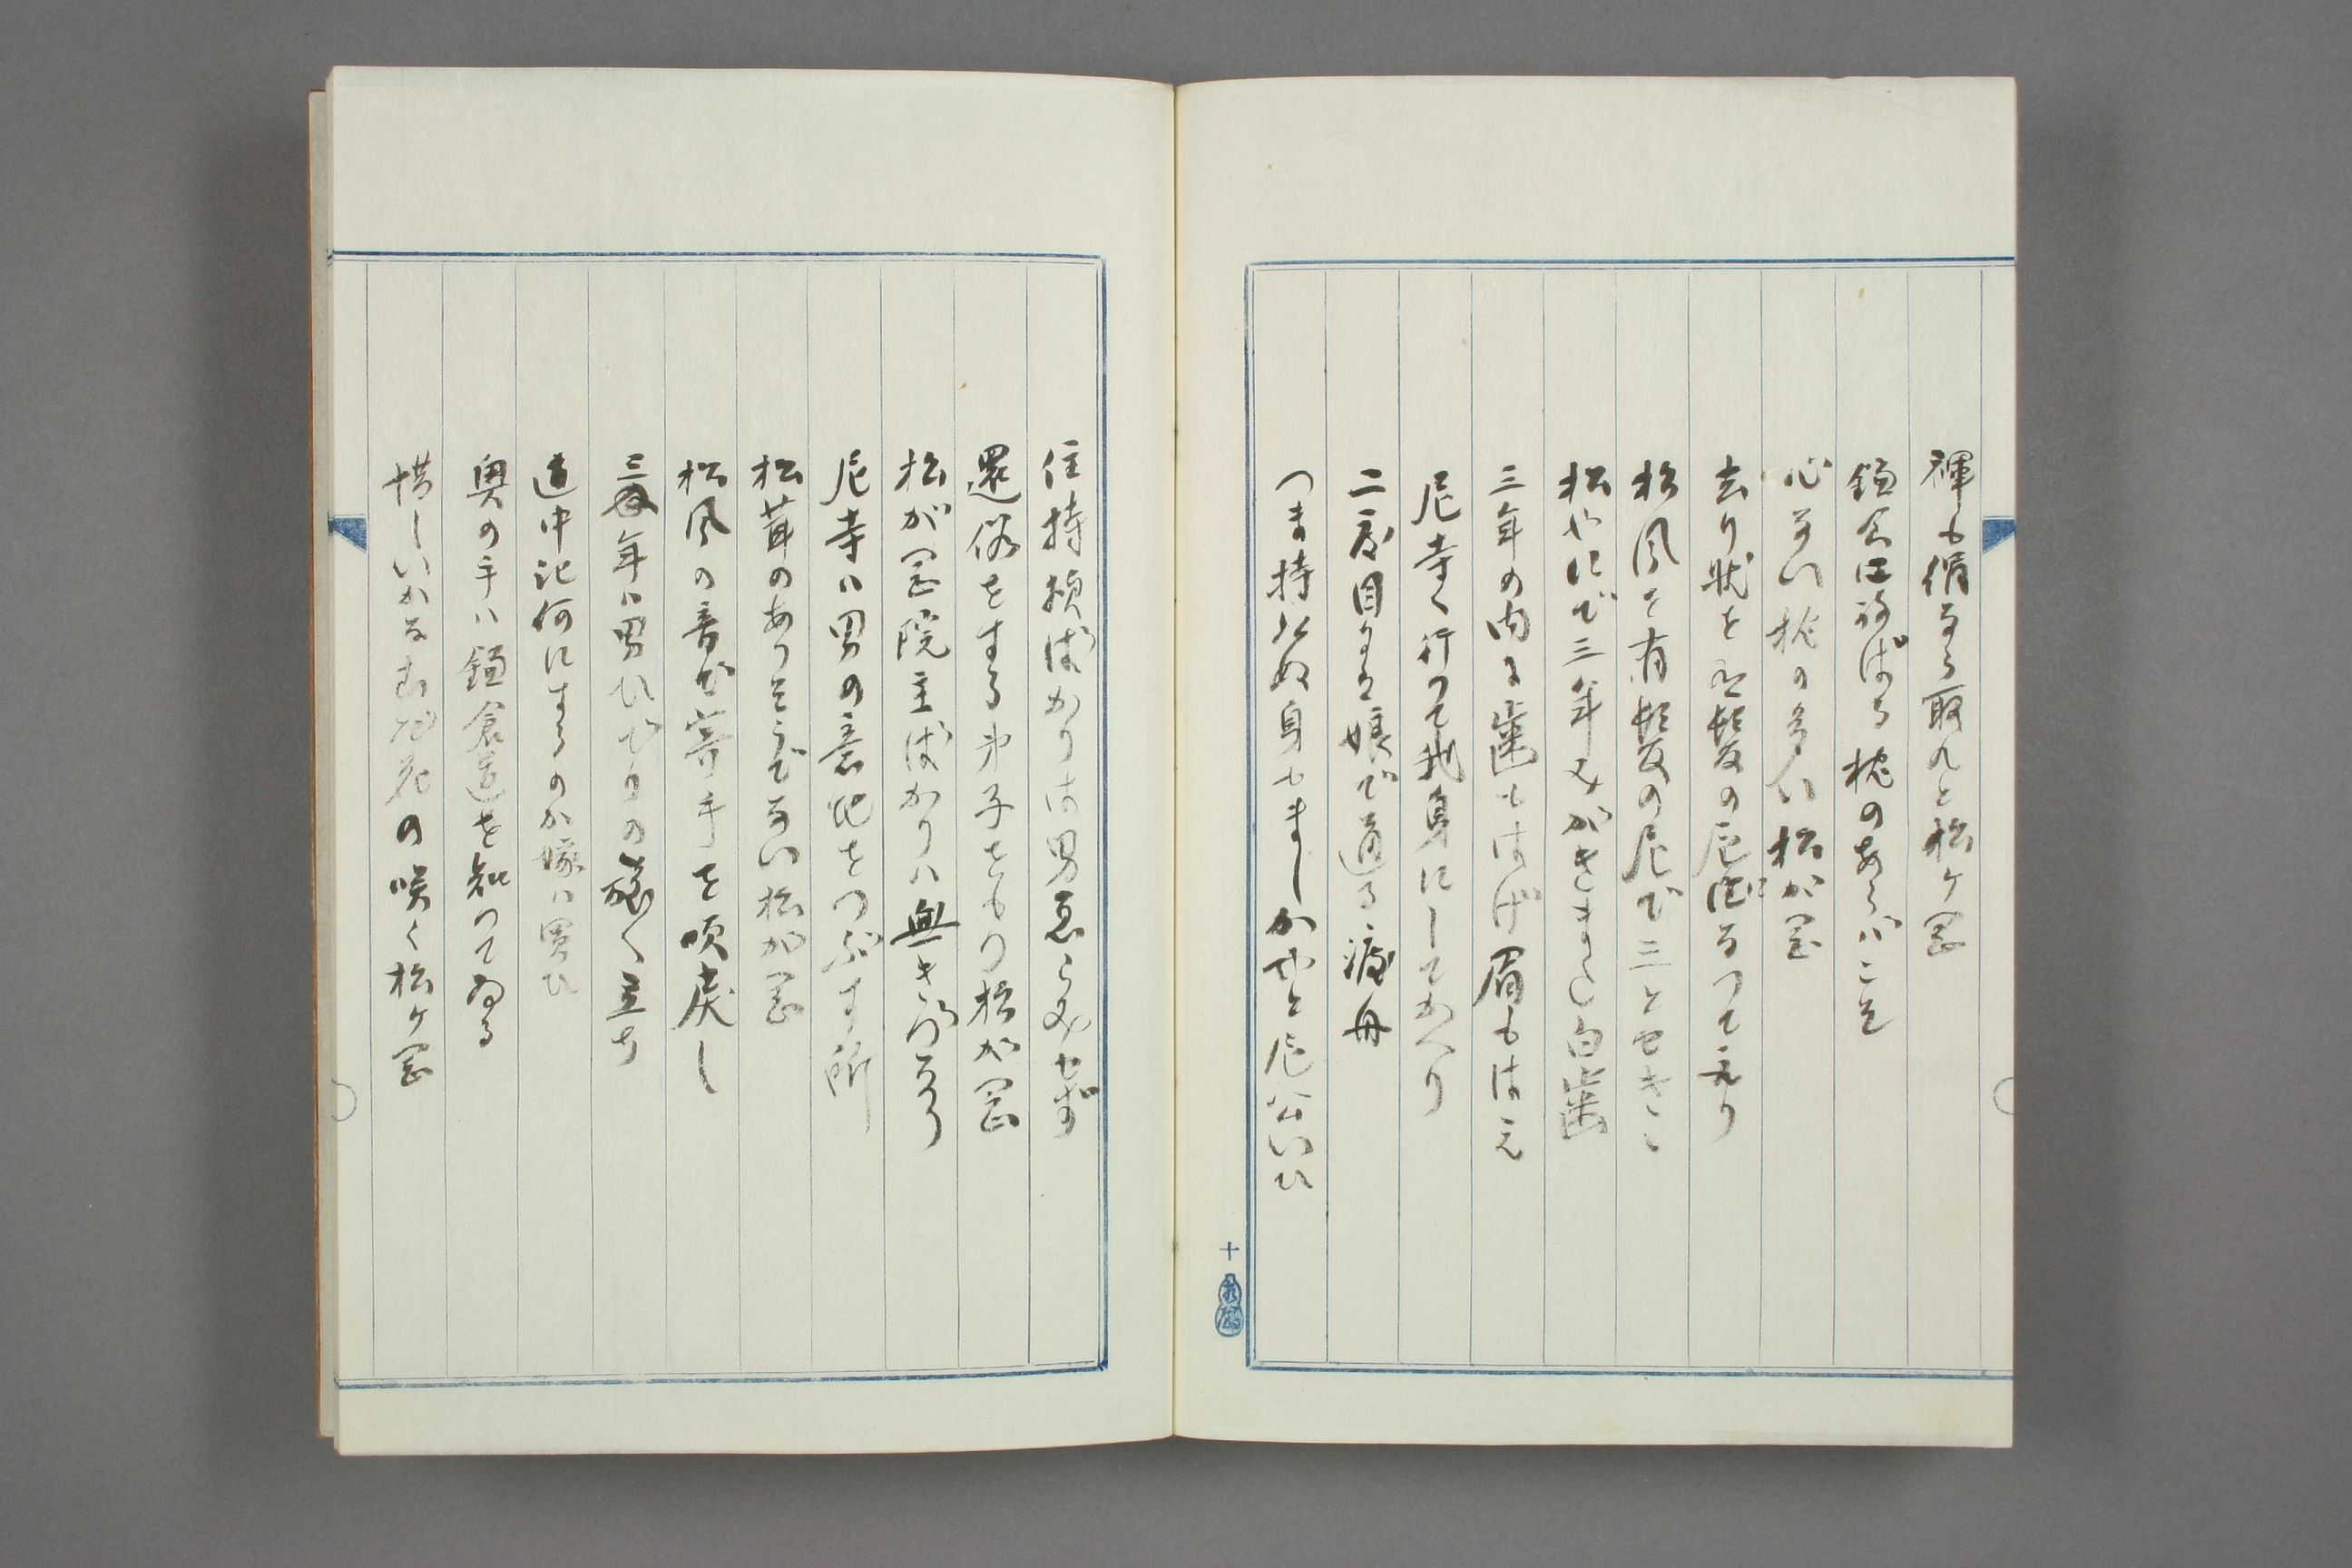 褌も借なら取れと松ヶ岡
鎌倉は砂ばる枕のあらバこそ
心ない枕の多い松が岡
去り状を有髪の尼になつて取り
松風を有髪の尼で三とせきゝ
松やにで三年みがきました白歯
三年の内に歯もはげ眉もはえ
尼寺へ行つて我身にしてかへり
二度目には娘で通る渡舟
つま持たぬ身もましかやと尼公いひ
住持様ばかりは男恋らみせず
還俗をする弟子をもつ松が岡
松が岡院主ばかりハ無きずなり
尼寺ハ男の意地をつぶす所
松茸のありそうでない松が岡
松風の音が寄手を吹戻し
三年ハ男ひでりの旅へ立ち
道中記何にするのか嫁ハ買ひ
奥の手ハ鎌倉道を知つてゐる
惜しいかな むだ花の咲く松ヶ岡
十